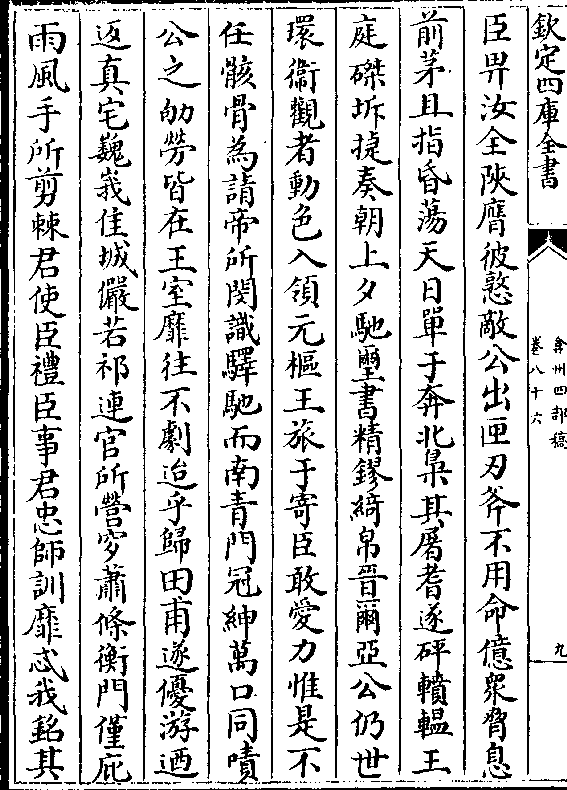 欽定四庫全書
弇州四部稿
卷八十六
九
臣畀汝全陜膺彼憝敵公出匣刃斧不用命億衆脅息
前茅且指昏蕩天日單于奔北㬥其屠耆遂砰轒轀王
庭磔坼㨗奏朝上夕馳璽書精鏐綺帛晉爾亞公仍世
環衞觀者動色入領元樞王旅于寄臣敢愛力惟是不
任骸骨為請帝所閔識驛馳而南青門冠紳萬口同嘖
公之劬勞皆在王室靡往不劇迨乎歸田甫遂優游迺
返真宅巍峩佳城儼若祁連官所營穸蕭條衡門僅庇
雨風手所剪棘君使臣禮臣事君忠師訓靡忒我銘其